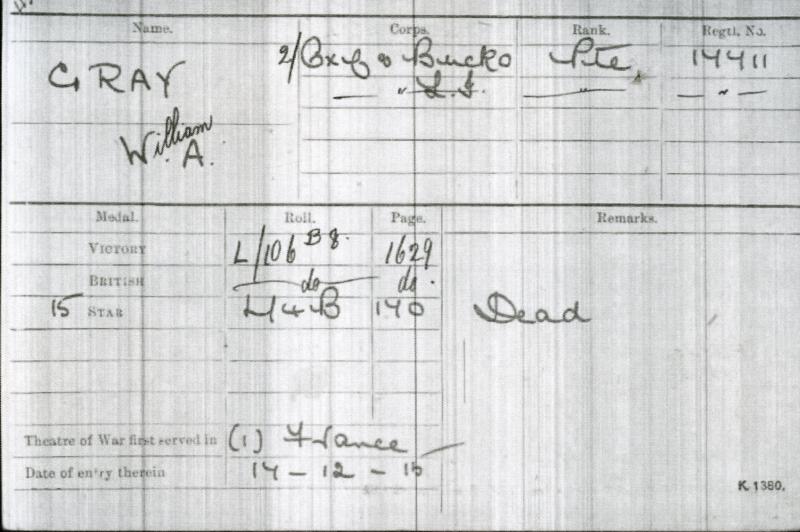 Name. Corps. Rank. Regtl. No.
GRAY 2/Oxf & Bucks Pte 14411
— " L.I. — " — — " —
William
A.
Medal. Roll. Page. Remarks.
VICTORY L/106 B8. 1629
BRITISH — do — do.
15 STAR L/4B 140 Dead
Theatre of War first served in (1) France
Date of entry therein 14 - 12 - 15
K. 1380.